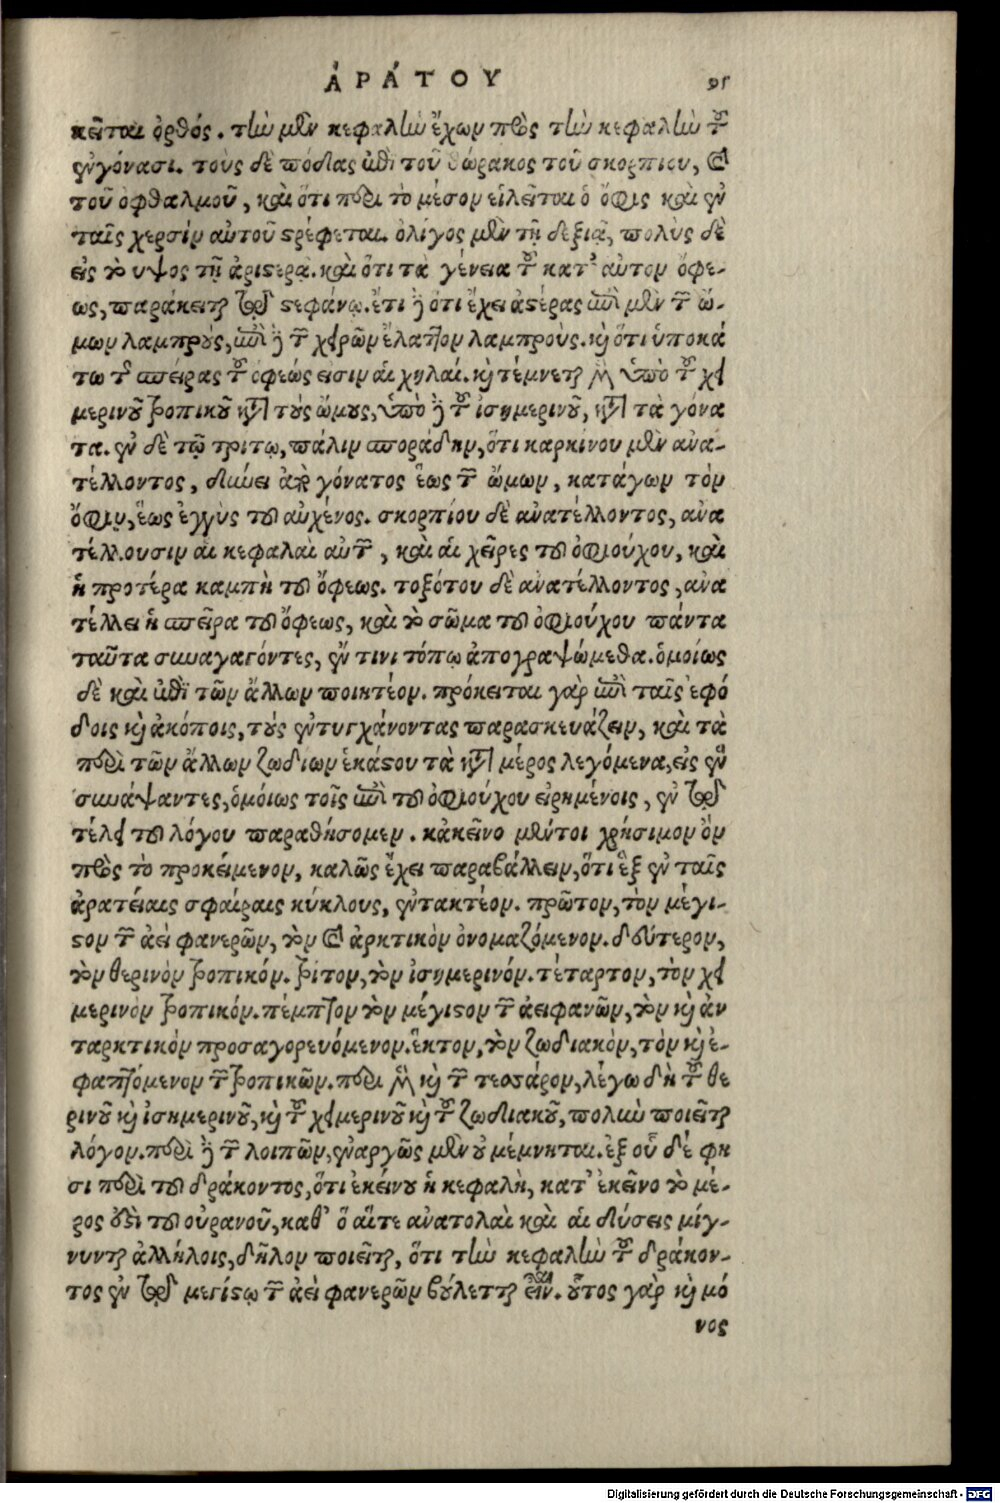 ἈΡΆΤΟΥ 91
κεῖται ὀρθός. τὴν μὲν κεφαλὴν ἔχων πρὸς τὴν κεφαλὴν τοῦ
ἐν γόνασι. τοὺς δὲ πόδας ἐπὶ τοῦ θώρακος τοῦ σκορπίου, καὶ
τοῦ ὀφθαλμοῦ, καὶ ὅτι περὶ τὸ μέσον εἰλεῖται ὁ ὄφις καὶ ἐν
ταῖς χερσὶν αὐτοῦ στρέφεται. ὀλίγος μὲν τῇ δεξιᾷ, πολὺς δὲ
εἰς τὸ υψος τῇ ἀριστερᾷ. καὶ ὅτι τὰ γένεια τοῦ κατ' αὐτον ὄφε-
ως, παράκειται τῷ στεφάνῳ. ἔτι δὲ ὅτι ἔχει ἀστέρας ἐπὶ μὲν τῶν ὤ-
μων λαμπρούς, ἐπὶ δὲ τῶν χειρῶν ἔλαττον λαμπρούς. καὶ ὅτι ὑποκά
τω τῆς σπείρας τοῦ ὄφεώς εἰσιν αἱ χηλαί. καὶ τέμνεται μὲν ὑπὸ τοῦ χει
μερινοῦ τροπικοῦ κατὰ τοὺς ὤμους, ὑπὸ δὲ τοῦ ἰσημερινοῦ, κατὰ τὰ γόνα
τα. ἐν δὲ τῷ τρίτῳ, πάλιν σποράδην, ὅτι καρκίνου μὲν ἀνα-
τέλλοντος, δύνει ἀπὸ γόνατος ἕως τῶν ὤμων, κατάγων τὸν
ὄφιν, ἕως ἐγγὺς τοῦ αὐχένος. σκορπίου δὲ ἀνατέλλοντος, ἀνα
τέλλουσιν αἱ κεφαλαὶ αὐτῶν, καὶ αἱ χεῖρες τοῦ ὀφιούχου, καὶ
ἡ προτέρα καμπὴ τοῦ ὄφεως. τοξότου δὲ ἀνατέλλοντος, ἀνα
τέλλει ἡ σπεῖρα τοῦ ὄφεως, καὶ τὸ σῶμα τοῦ ὀφιούχου πάντα
ταῦτα συναγαγόντες, ἔν τινι τόπῳ ἀπογραψώμεθα. ὁμοίως
δὲ καὶ ἐπὶ τῶν ἄλλων ποιητέον. πρόκειται γὰρ ἐπὶ ταῖς ἐφό
δοις καὶ ἀκόποις, τοὺς ἐντυγχάνοντας παρασκευάζειν, καὶ τὰ
περὶ τῶν ἄλλων ζωδίων ἑκάστου τὰ κατὰ μέρος λεγόμενα, εἰς ἓν
συνάψαντες, ὁμόίως τοῖς ἐπὶ τοῦ ὀφιούχου εἰρημένοις, ἐν τῷ
τέλει τοῦ λόγου παραθήσομεν. κἀκεῖνο μέντοι χρήσιμον ὂν
πρὸς τὸ προκείμενον, καλῶς ἔχει παραβάλλειν, ὅτι ἓξ ἐν ταῖς
ἀρατείαις σφαίραις κύκλους, ἐντακτέον. πρῶτον, τὸν μέγι-
στον τῶν ἀεὶ φανερῶν, τὸν καὶ ἀρκτικὸν ὀνομαζόμενον. δεύτερον,
τὸν θερινὸν τροπικόν. τρίτον, τὸν ἰσημερινόν. τέταρτον, τὸν χει
μερινὸν τροπικόν. πέμπτον τὸν μέγιστον τῶν ἀειφανῶν, τὸν καὶ ἀν
ταρκτικὸν προσαγορευόμενον. ἕκτον, τὸν ζωδιακὸν, τὸν καὶ ἐ-
φαπτόμενον τῶν τροπικῶν. περὶ μὲν καὶ τῶν τεσσάρον, λέγω δὴ τοῦ θε
ρινοῦ καὶ ἰσημερινοῦ, καὶ τοῦ χειμερινοῦ καὶ τοῦ ζωδιακοῦ, πολὺν ποιεῖται
λόγον. περὶ δὲ τῶν λοιπῶν, ἐναργῶς μὲν οὐ μέμνηται. ἐξ οὗ δέ φη
σι περὶ τοῦ δράκοντος, ὅτι ἐκείνου ἡ κεφαλὴ, κατ' ἐκεῖνο τὸ μέ-
ρος ἐστὶ τοῦ οὐρανοῦ, καθ' ὃ αἵτε ἀνατολαὶ καὶ αἱ δύσεις μίγ-
νυνται ἀλλήλοις, δῆλον ποιεῖται, ὅτι τὴν κεφαλὴν τοῦ δράκον-
τος ἐν τῷ μεγίστῳ τῶν ἀεὶ φανερῶν βούλεται εἶναι. οὗτος γὰρ καὶ μό
νος
Digitalisierung gefördert durch die Deutsche Forschungsgemeinschaft - DFG